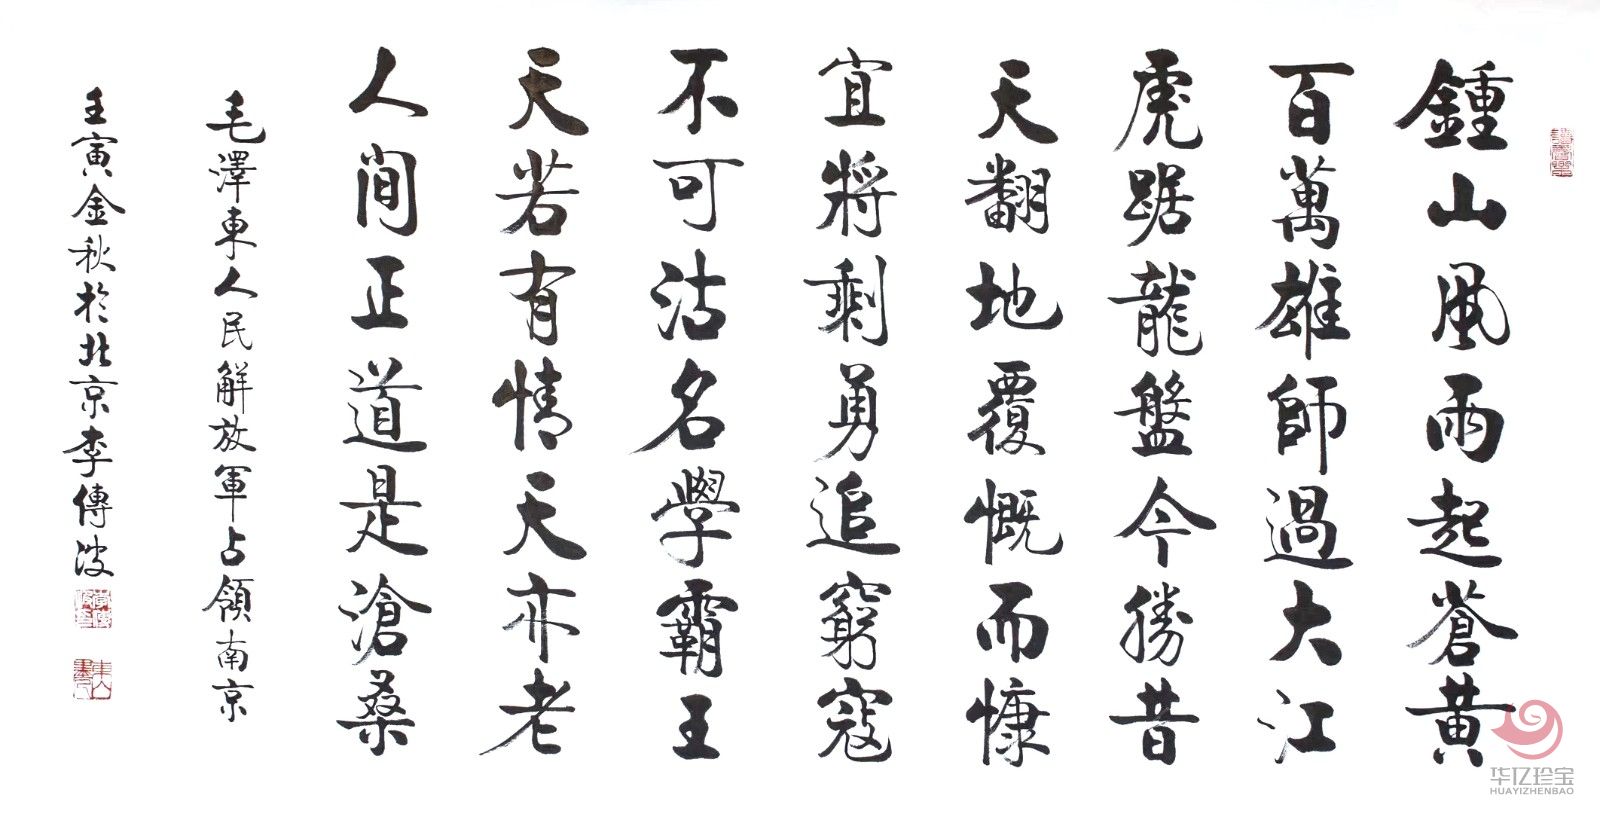 鍾山風雨起蒼黃
百萬雄師過大江
虎踞龍盤今勝昔
天翻地覆慨而慷
宜將剩勇追窮寇
不可沽名學霸王
天若有情天亦老
人间正道是滄桑
毛澤東人民解放軍占領南京
壬寅金秋於北京李傳波
华亿珍宝
HUAYIZHENBAO